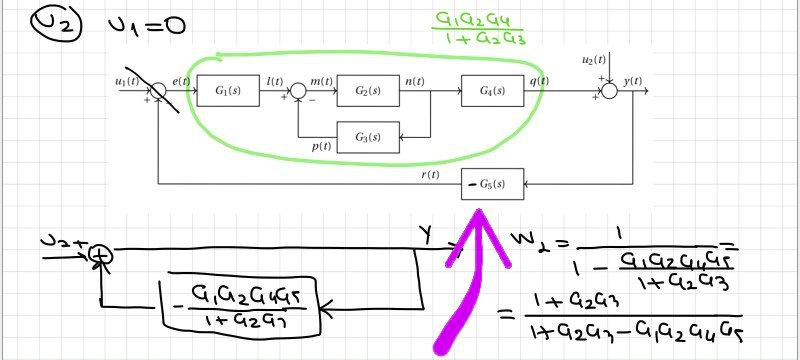 U2 U1=0
G1G2G4
1+G2G3
u2(t)
u1(t) e(t) G1(s) l(t) m(t) G2(s) n(t) G4(s) q(t) y(t)
+ + − + +
G3(s)
p(t)
r(t)
-G5(s)
U2+ + Y
- G1G2G4G5
1+G2G3
W2 = 1 =
1 - G1G2G4G5
1+G2G3
= 1+G2G3
1+G2G3-G1G2G4G5